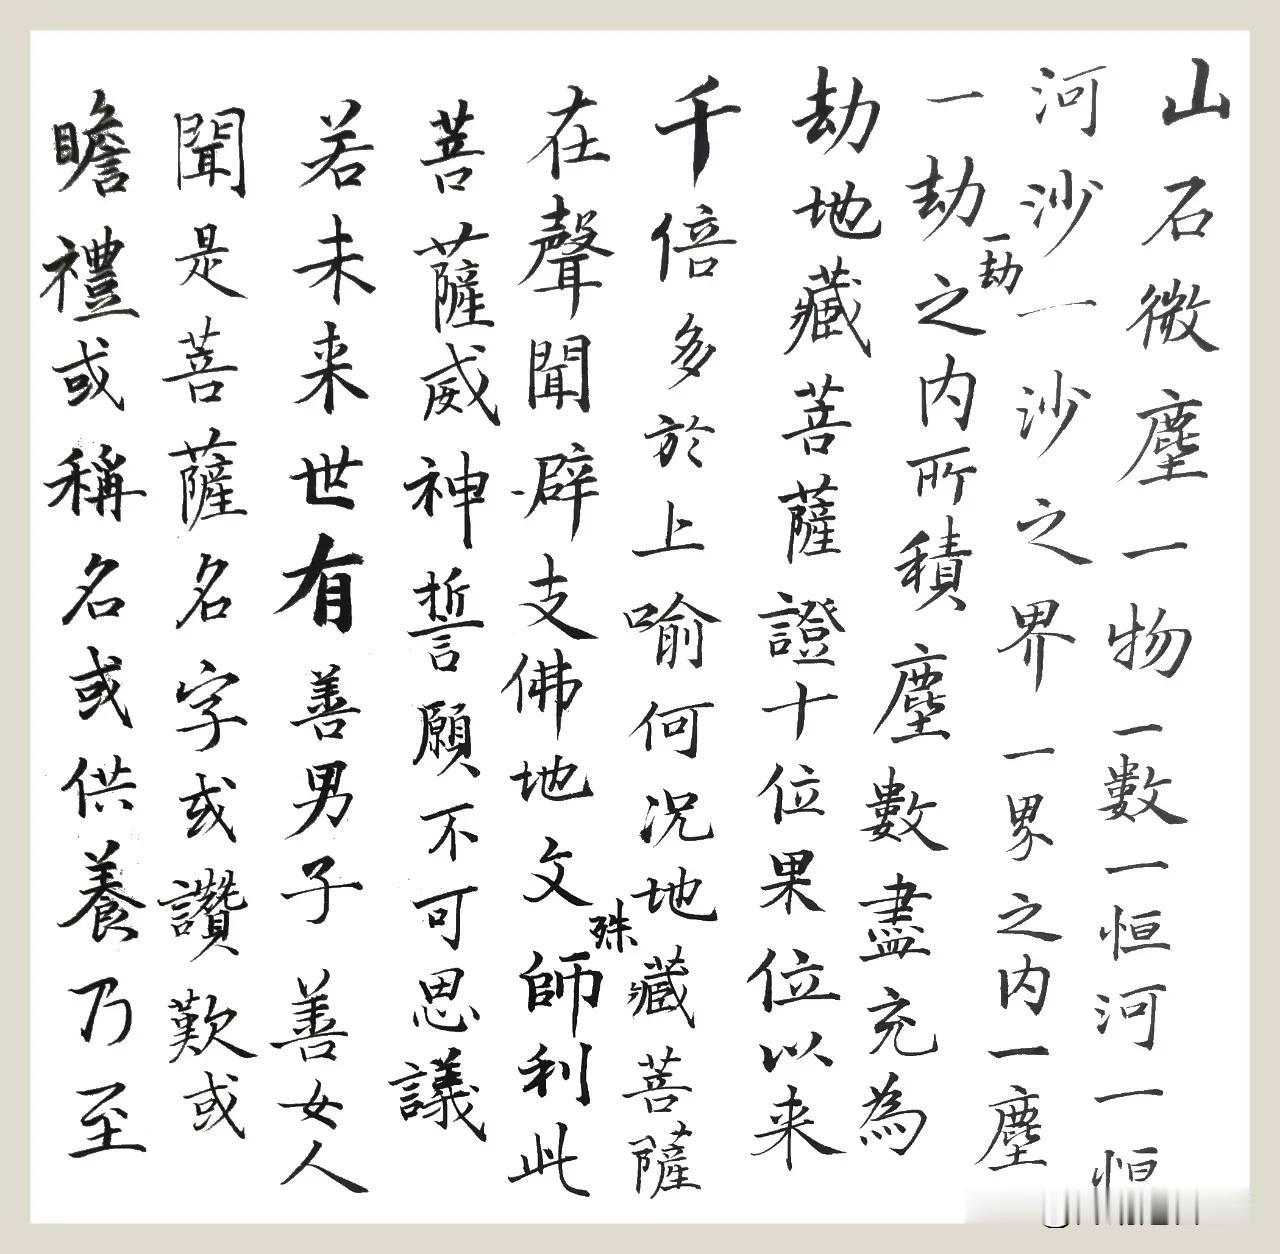 山石微塵一物一數一恒河一恒
河沙一沙之界一界之内一塵
一劫
一劫之内所積塵數盡充為
劫地藏菩薩證十位果位以来
千倍多於上喻何況地藏菩薩
在聲聞辟支佛地文殊師利此
菩薩威神誓願不可思議
若未来世有善男子善女人
聞是菩薩名字或讚歎或
瞻禮或稱名或供養乃至